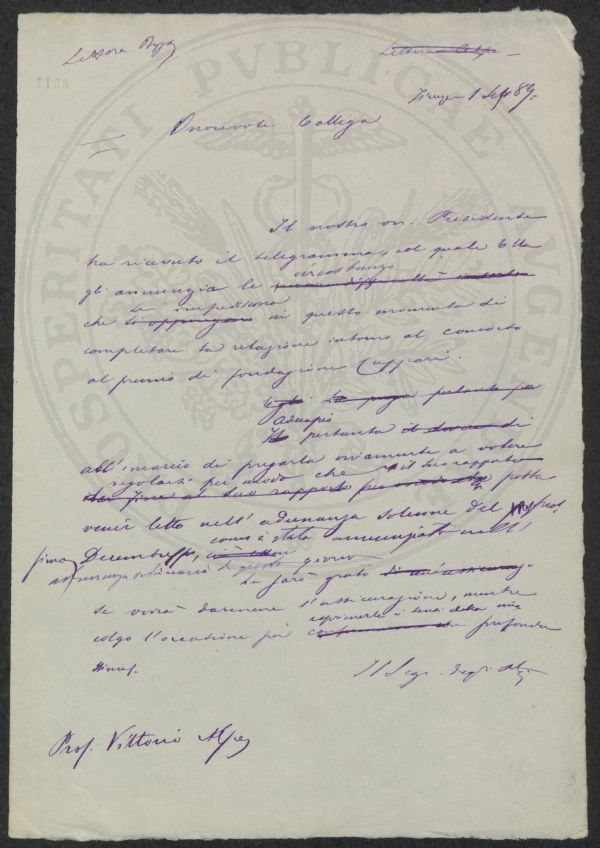 Lettera
1168
Firenze 1 89
Onorevole Collega
Il nostro on. Presidente
ha ricevuto il telegramma, col quale Ella
gli annunzia le circostanze
che Le impediscono in questo momento di
completare la relazione intorno al concorso
al premio di fondazione Cuppari.
Adempio
pertanto
all'incarico di pregarla vivamente a volere
regolarsi per modo che il Suo rapporto
possa
venir letto nell'adunanza solenne del
Decembre pp, come è stato annunziato nell'
adunanza ordinaria di questo giorno
Le sarò grato
se vorrà darmene l'assicurazione, mentre
colgo l'occasione per esprimerle i sensi della mia profonda
stima.
Il Segr. degli Atti
Prof. Vittorio Alpe
PROSPERITATI PUBLICAE AUGENDAE